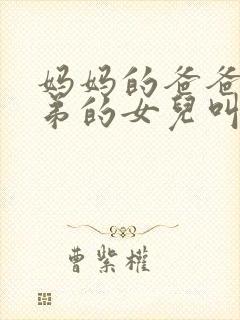 妈妈的爸爸
弟的女兒叫
曹紫權